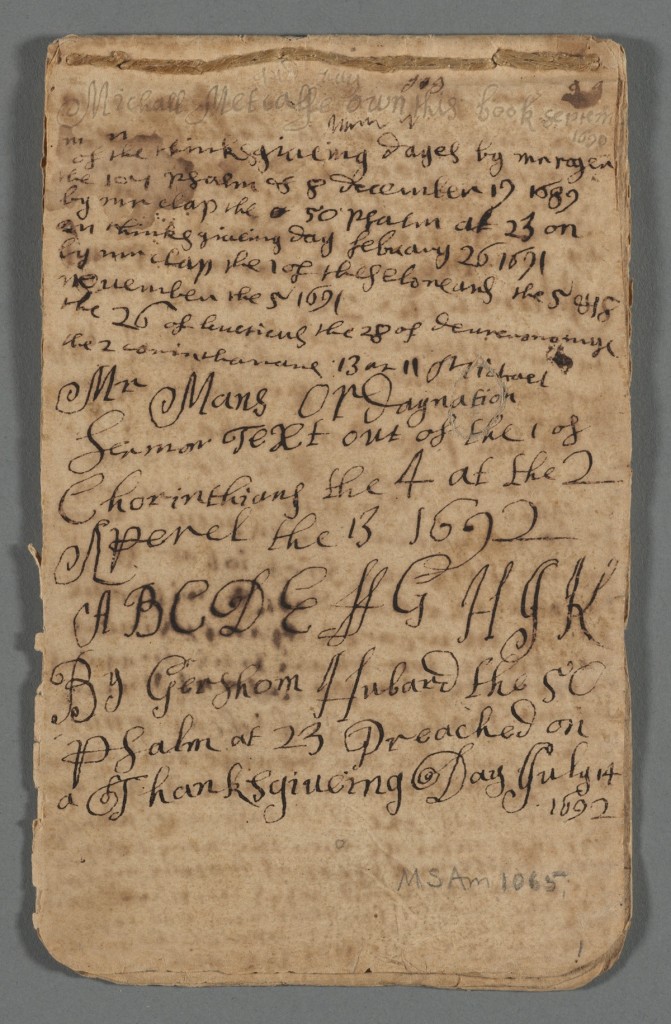 Michaell Metcalfe own this book septem
1690
of the thinksgiueing dayes by mr roger
the 107 psalm of 8 december 19 1689
by mr clap the 50 psalm at 23 on
on thinksgiueing day february 26 1691
by mr clap the 1 of theseloneans the 5 at 18
nouember the 5 1691
the 26 of leueticus the 28 of deureronomye
the 2 corinthaians 13 at 11 Michael
Mr Mans Ordaynation
Sermon Text out of the 1 of
Chorinthians the 4 at the 2
Aperel the 13 1692
A B C D E ff G H J K
By Gershom Hubard the 50
Psalm at 23 Preached on
a Thanksgiueing Day July 14
1692
MS Am 1065
1